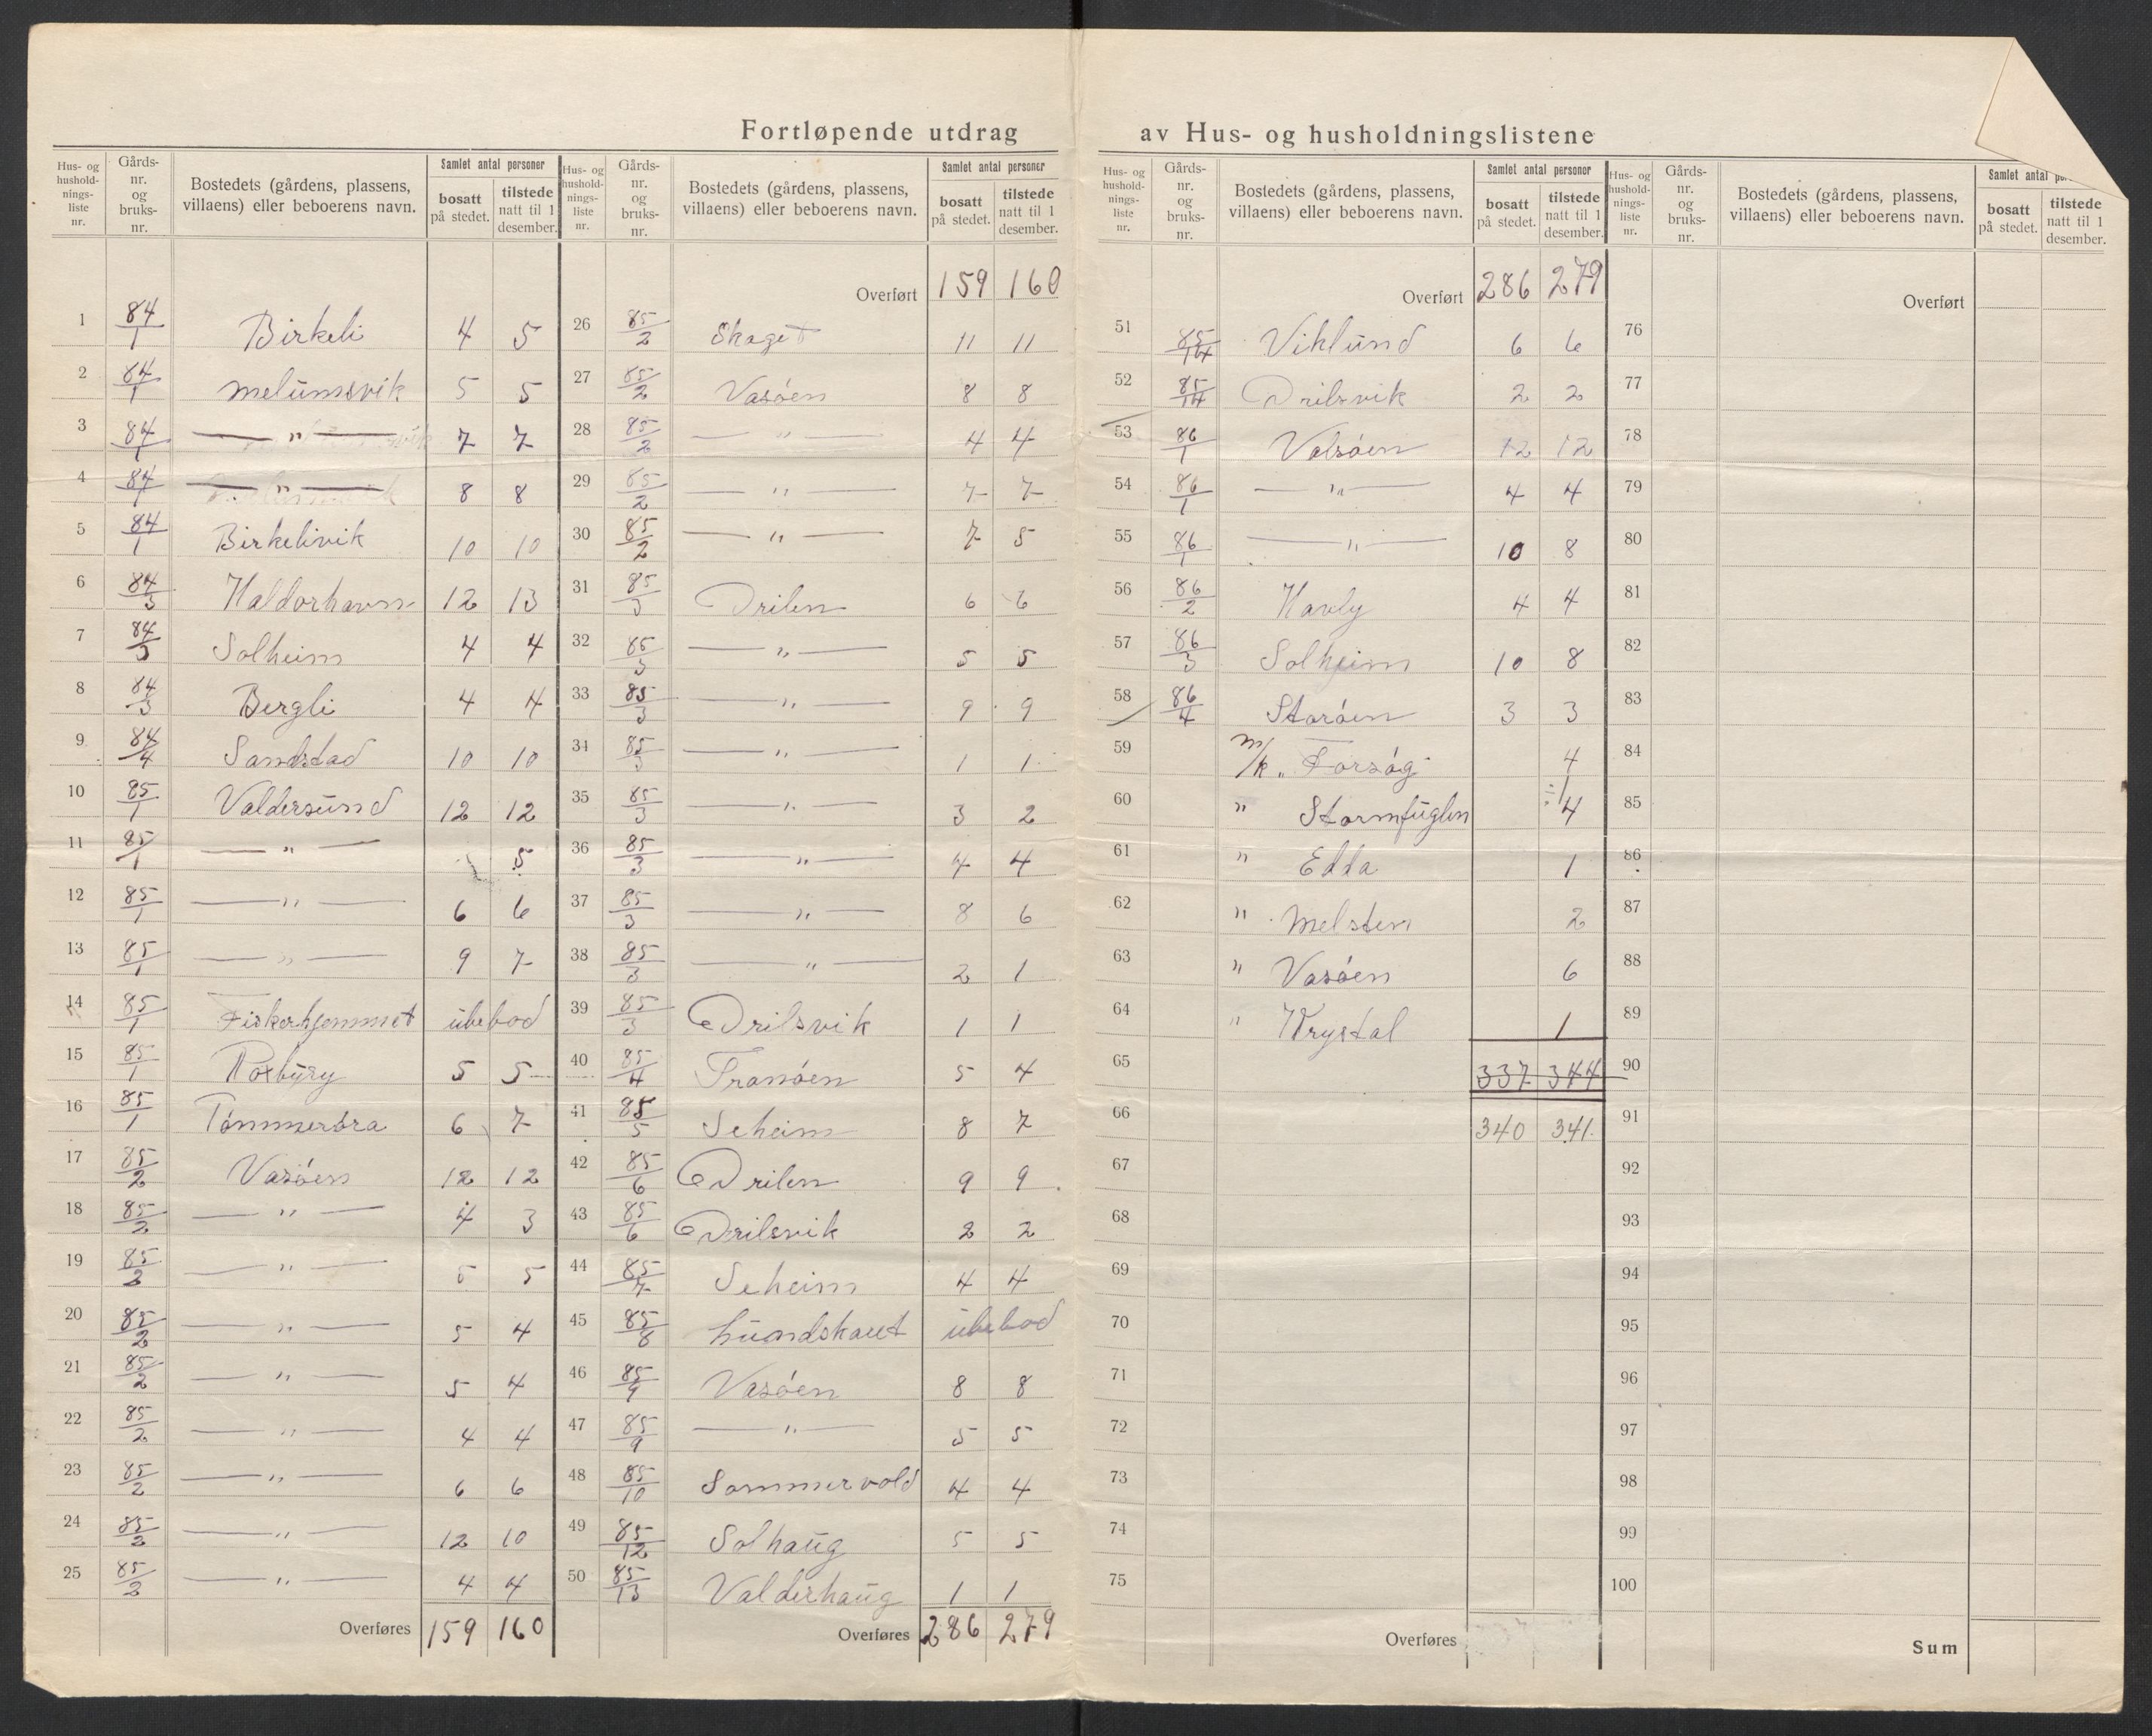 Fortløpende utdrag av Hus- og husholdningslistene
Hus- og hushold-nings-liste nr. | Gårds-nr. og bruks-nr. | Bostedets (gårdens, plassens, villaens) eller beboerens navn. | Samlet antal personer | bosatt på stedet. | tilstede natt til 1 desember.
1 84/1 Birkeli 4 5
2 84/1 Melümsvik 5 5
3 84/1 — " — 7 7
4 84/1 — " — 8 8
5 84/1 Birkelivik 10 10
6 84/3 Haldorhavn 12 13
7 84/3 Solheim 4 4
8 84/3 Bergli 4 4
9 84/4 Sandstad 10 10
10 85/1 Valdersünd 12 12
11 85/1 — " — 5
12 85/1 — " — 6 6
13 85/1 — " — 9 7
14 85/1 Fiskerhjemmet übebod
15 85/1 Roxbüry 5 5
16 85/1 Tømmeråra 6 7
17 85/2 Vasøen 12 12
18 85/2 — " — 4 3
19 85/2 — " — 5 5
20 85/2 — " — 5 4
21 85/2 — " — 5 4
22 85/2 — " — 4 4
23 85/2 — " — 6 6
24 85/2 — " — 12 10
25 85/2 — " — 4 4
Overføres 159 160
Hus- og hushold-nings-liste nr. | Gårds-nr. og bruks-nr. | Bostedets (gårdens, plassens, villaens) eller beboerens navn. | Samlet antal personer | bosatt på stedet. | tilstede natt til 1 desember.
Overført 159 160
26 85/2 Skaget 11 11
27 85/2 Vasøen 8 8
28 85/2 — " — 4 4
29 85/2 — " — 7 7
30 85/2 — " — 7 5
31 85/3 Drilen 6 6
32 85/3 — " — 5 5
33 85/3 — " — 9 9
34 85/3 — " — 1 1
35 85/3 — " — 3 2
36 85/3 — " — 4 4
37 85/3 — " — 8 6
38 85/3 — " — 2 1
39 85/3 Drilsvik 1 1
40 85/4 Tranøen 5 4
41 85/5 Seheim 8 7
42 85/6 Drilen 9 9
43 85/6 Drilsvik 2 2
44 85/7 Seheim 4 4
45 85/8 übebod
46 85/9 Vasøen 8 8
47 85/9 — " — 5 5
48 85/10 Sommervold 4 4
49 85/12 Solhaüg 5 5
50 85/13 Valderhaüg 1 1
Overføres 286 279
Hus- og hushold-nings-liste nr. | Gårds-nr. og bruks-nr. | Bostedets (gårdens, plassens, villaens) eller beboerens navn. | Samlet antal personer | bosatt på stedet. | tilstede natt til 1 desember.
Overført 286 279
51 85/14 Viklünd 6 6
52 85/14 Drilsvik 2 2
53 86/1 Valsøen 12 12
54 86/1 — " — 4 4
55 86/1 — " — 10 8
56 86/2 Havly 4 4
57 86/3 Solheim 10 8
58 86/4 Storøen 3 3
59 m/k „ Forsøg 4
60 " Stormfüglen 4
61 " Edda 1
62 " Melsten 2
63 " Vasøen 6
64 " Krystal 1
65 337 344
66 340 341
67
68
69
70
71
72
73
74
75
Overføres
Hus- og hushold-nings-liste nr. | Gårds-nr. og bruks-nr. | Bostedets (gårdens, plassens, villaens) eller beboerens navn. | Samlet antal | bosatt på stedet. | tilstede natt til 1 desember.
Overført
76
77
78
79
80
81
82
83
84
85
86
87
88
89
90
91
92
93
94
95
96
97
98
99
100
Sum